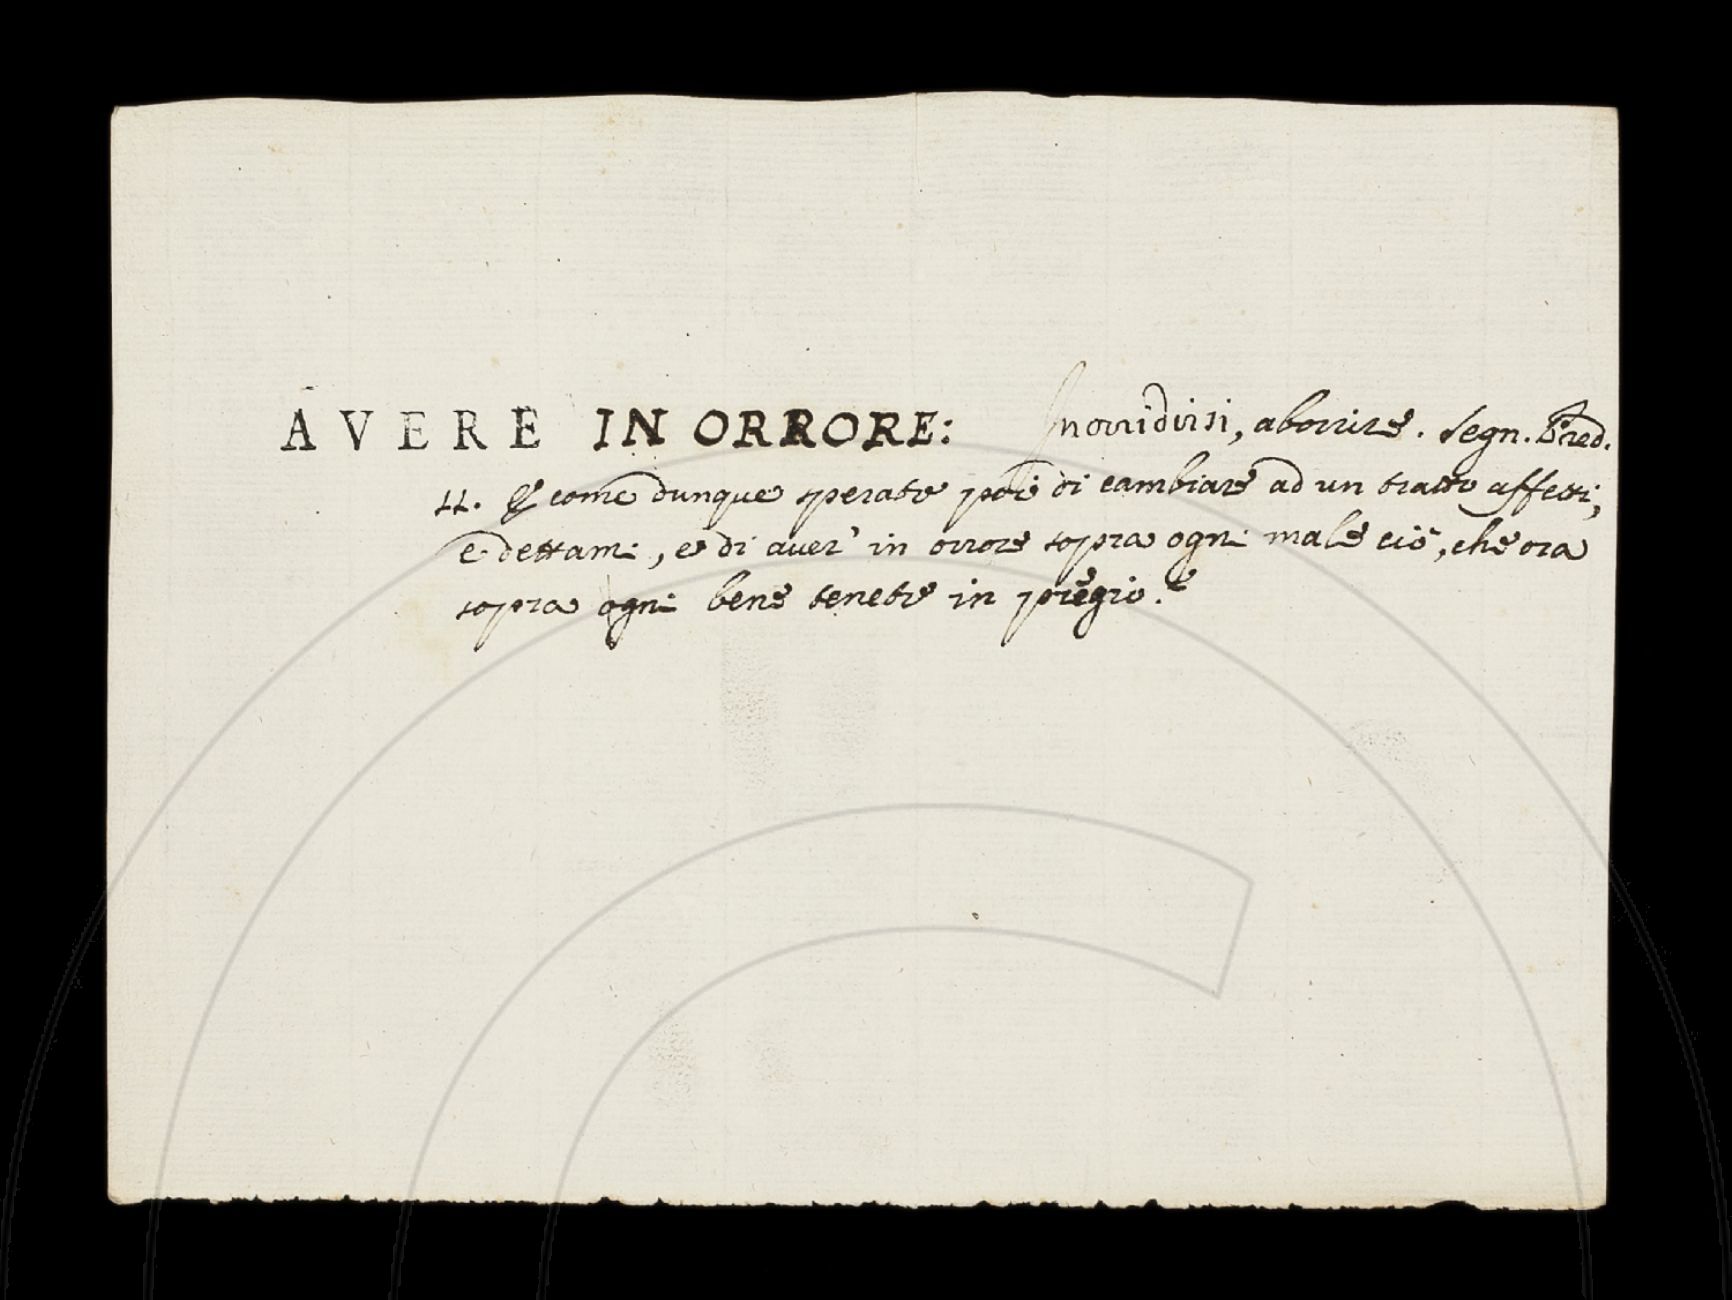 AVERE IN ORRORE: Inorridirsi, aborrire. Segn. Pred.
11. E come dunque sperate poi di cambiare ad un tratto affetti,
e dettami, e di aver' in orrore sopra ogni male ciò, che ora
sopra ogni bene tenete in pregio?